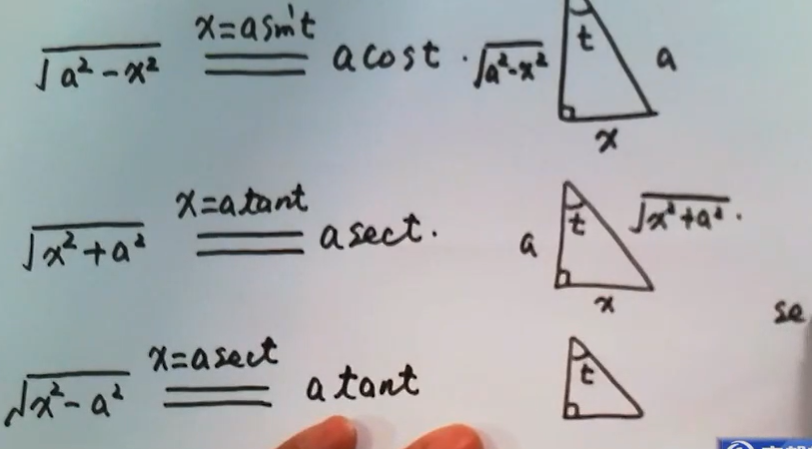 √(a² - x²) x = a sin t a cos t . √(a² - x²) t a
x
√(x² + a²) x = a tan t a sec t . a t √(x² + a²) .
x
se
√(x² - a²) x = a sec t a tan t t